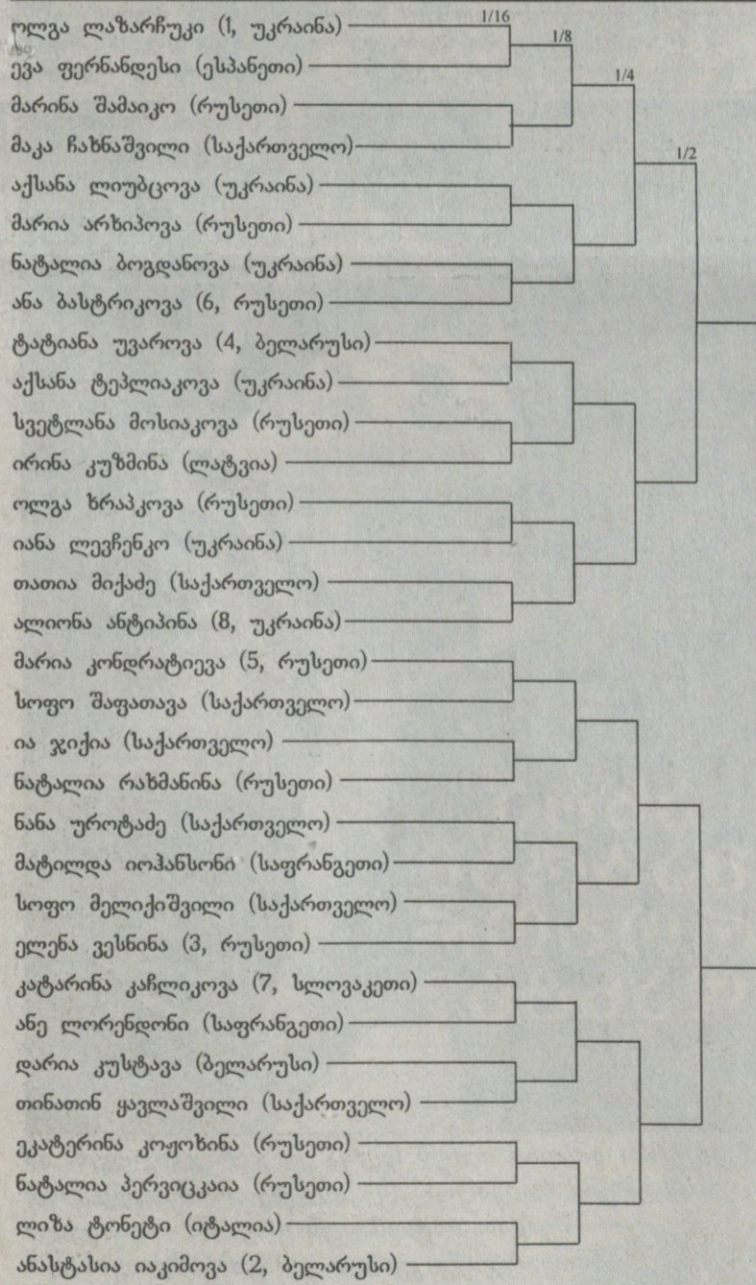 ოლგა ლაზარჩუკი (1, უკრაინა)
1/16
1/8
1/4
1/2
ევა ფერნანდესი (ესპანეთი)
მარინა შამაიკო (რუსეთი)
მაკა ჩახნაშვილი (საქართველო)
აქსანა ლიუბცოვა (უკრაინა)
მარია არხიპოვა (რუსეთი)
ნატალია ბოგდანოვა (უკრაინა)
ანა ბასტრიკოვა (6, რუსეთი)
ტატიანა უვაროვა (4, ბელარუსი)
აქსანა ტეპლიაკოვა (უკრაინა)
სვეტლანა მოსიაკოვა (რუსეთი)
ირინა კუზმინა (ლატვია)
ოლგა ხრაპკოვა (რუსეთი)
იანა ლევჩენკო (უკრაინა)
თათია მიქაძე (საქართველო)
ალიონა ანტიპინა (8, უკრაინა)
მარია კონდრატიევა (5, რუსეთი)
სოფო შაფათავა (საქართველო)
ია ჯიქია (საქართველო)
ნატალია რახმანინა (რუსეთი)
ნანა უროტაძე (საქართველო)
მატილდა იოჰანსონი (საფრანგეთი)
სოფო მელიქიშვილი (საქართველო)
ელენა ვესნინა (3, რუსეთი)
კატარინა კაჩლიკოვა (7, სლოვაკეთი)
ანე ლორენდონი (საფრანგეთი)
დარია კუსტავა (ბელარუსი)
თინათინ ყავლაშვილი (საქართველო)
ეკატერინა კოჟოხინა (რუსეთი)
ნატალია პერვიცკაია (რუსეთი)
ლიზა ტონეტი (იტალია)
ანასტასია იაკიმოვა (2, ბელარუსი)